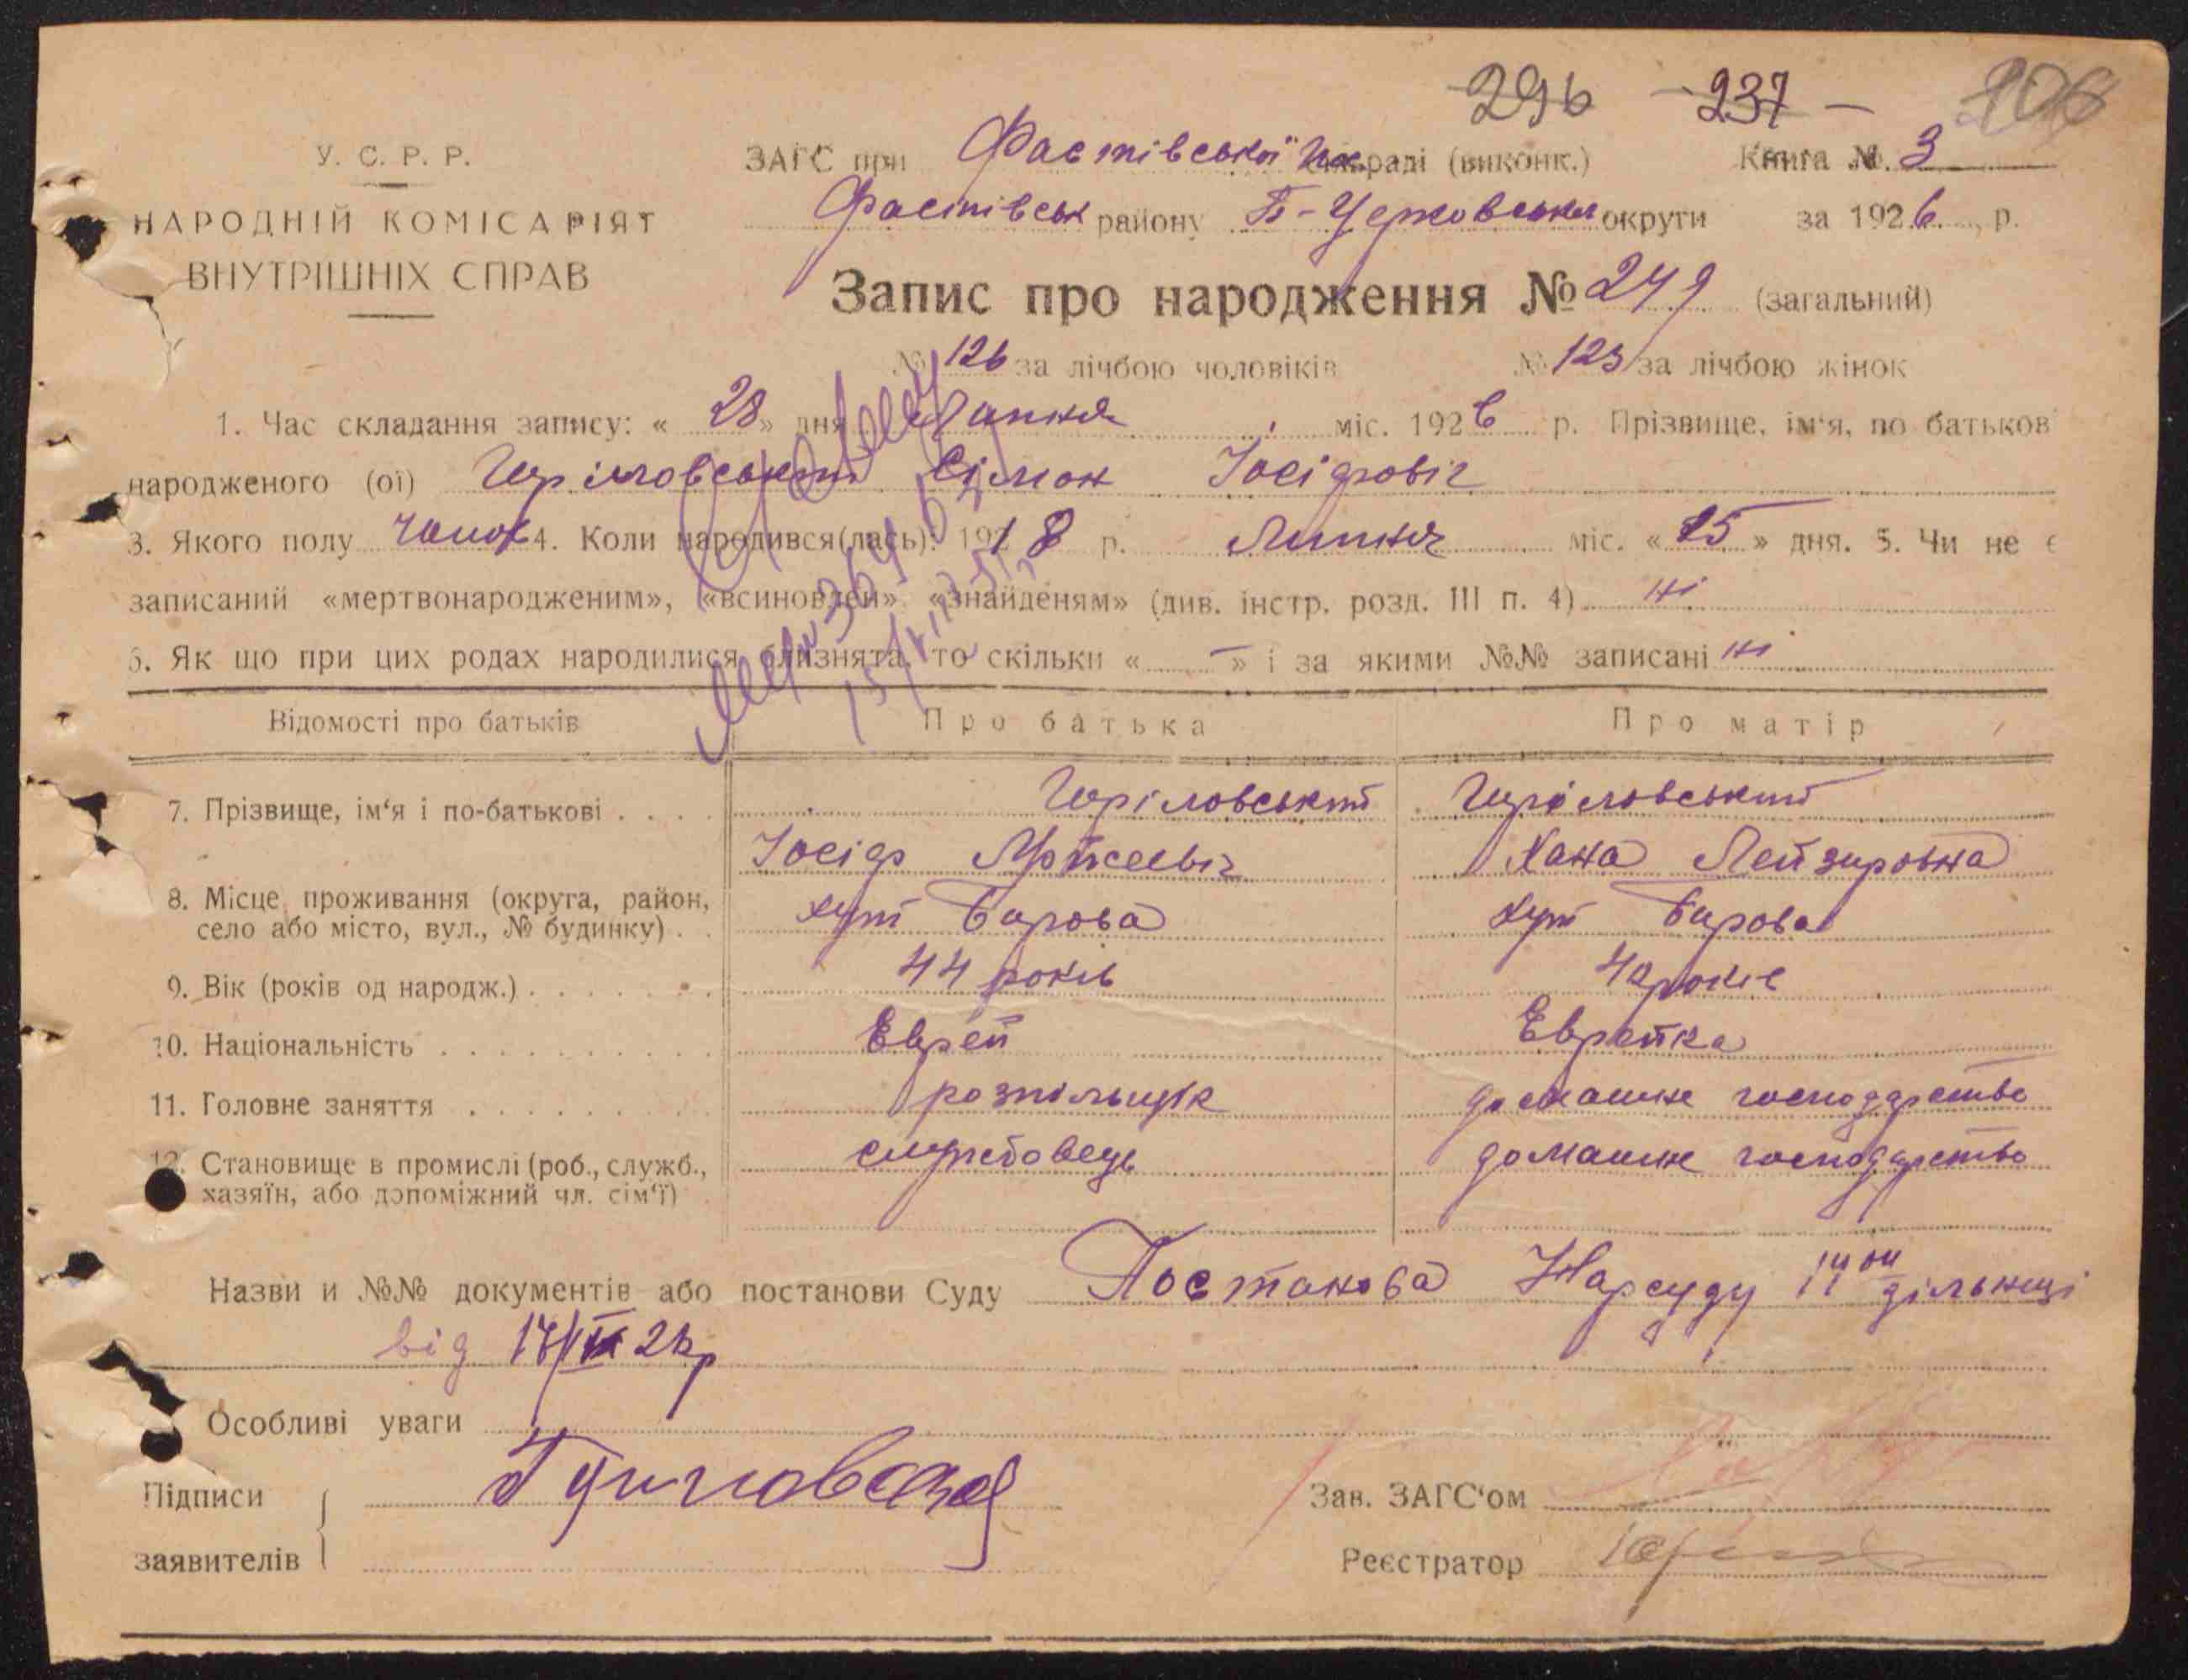 296 - 237 - 106
У. С. Р. Р.
НАРОДНІЙ КОМІСАРІЯТ
ВНУТРІШНІХ СПРАВ
ЗАГС при Фастівської раді (виконк.) Книга №. 3
Фастівськ району Б-Церковської округи за 1926 р.
Запис про народження № 249 (загальний)
№ 126 за лічбою чоловіків № 123 за лічбою жінок
1. Час складання запису: « 28 » дня Липня міс. 1926 р. Прізвище, ім'я, по батьков
народженого (ої) Гуріловський Сімон Іосіфовіч
3. Якого полу чолов 4. Коли народився(лась): 1918 р. Липня міс. « 25 » дня. 5. Чи не є
записаний «мертвонародженим», «всиновлен» «знайденям» (див. інстр. розд. III п. 4) ні
6. Як що при цих родах народилися близнята, то скільки « — » і за якими №№ записані ні
Відомості про батьків Про батька Про матір
7. Прізвище, ім'я і по-батькові Гуріловський Гуріловський
Іосіф Мойсеєвіч Хана Лейзеровна
8. Місце проживання (округа, район,
село або місто, вул., № будинку) хут Барова хут Барова
9. Вік (років од народж.) 44 років 42 років
10. Національність Еврей Еврейка
11. Головне заняття розпільщік домашнє господарство
12. Становище в промислі (роб., служб.,
хазяїн, або допоміжний чл. сім'ї) службовець домашнє господарство
Назви и №№ документів або постанови Суду Постанова Нарсуду дільниці
від
Особливі уваги
Підписи
заявителів
Зав. ЗАГС'ом
Реєстратор